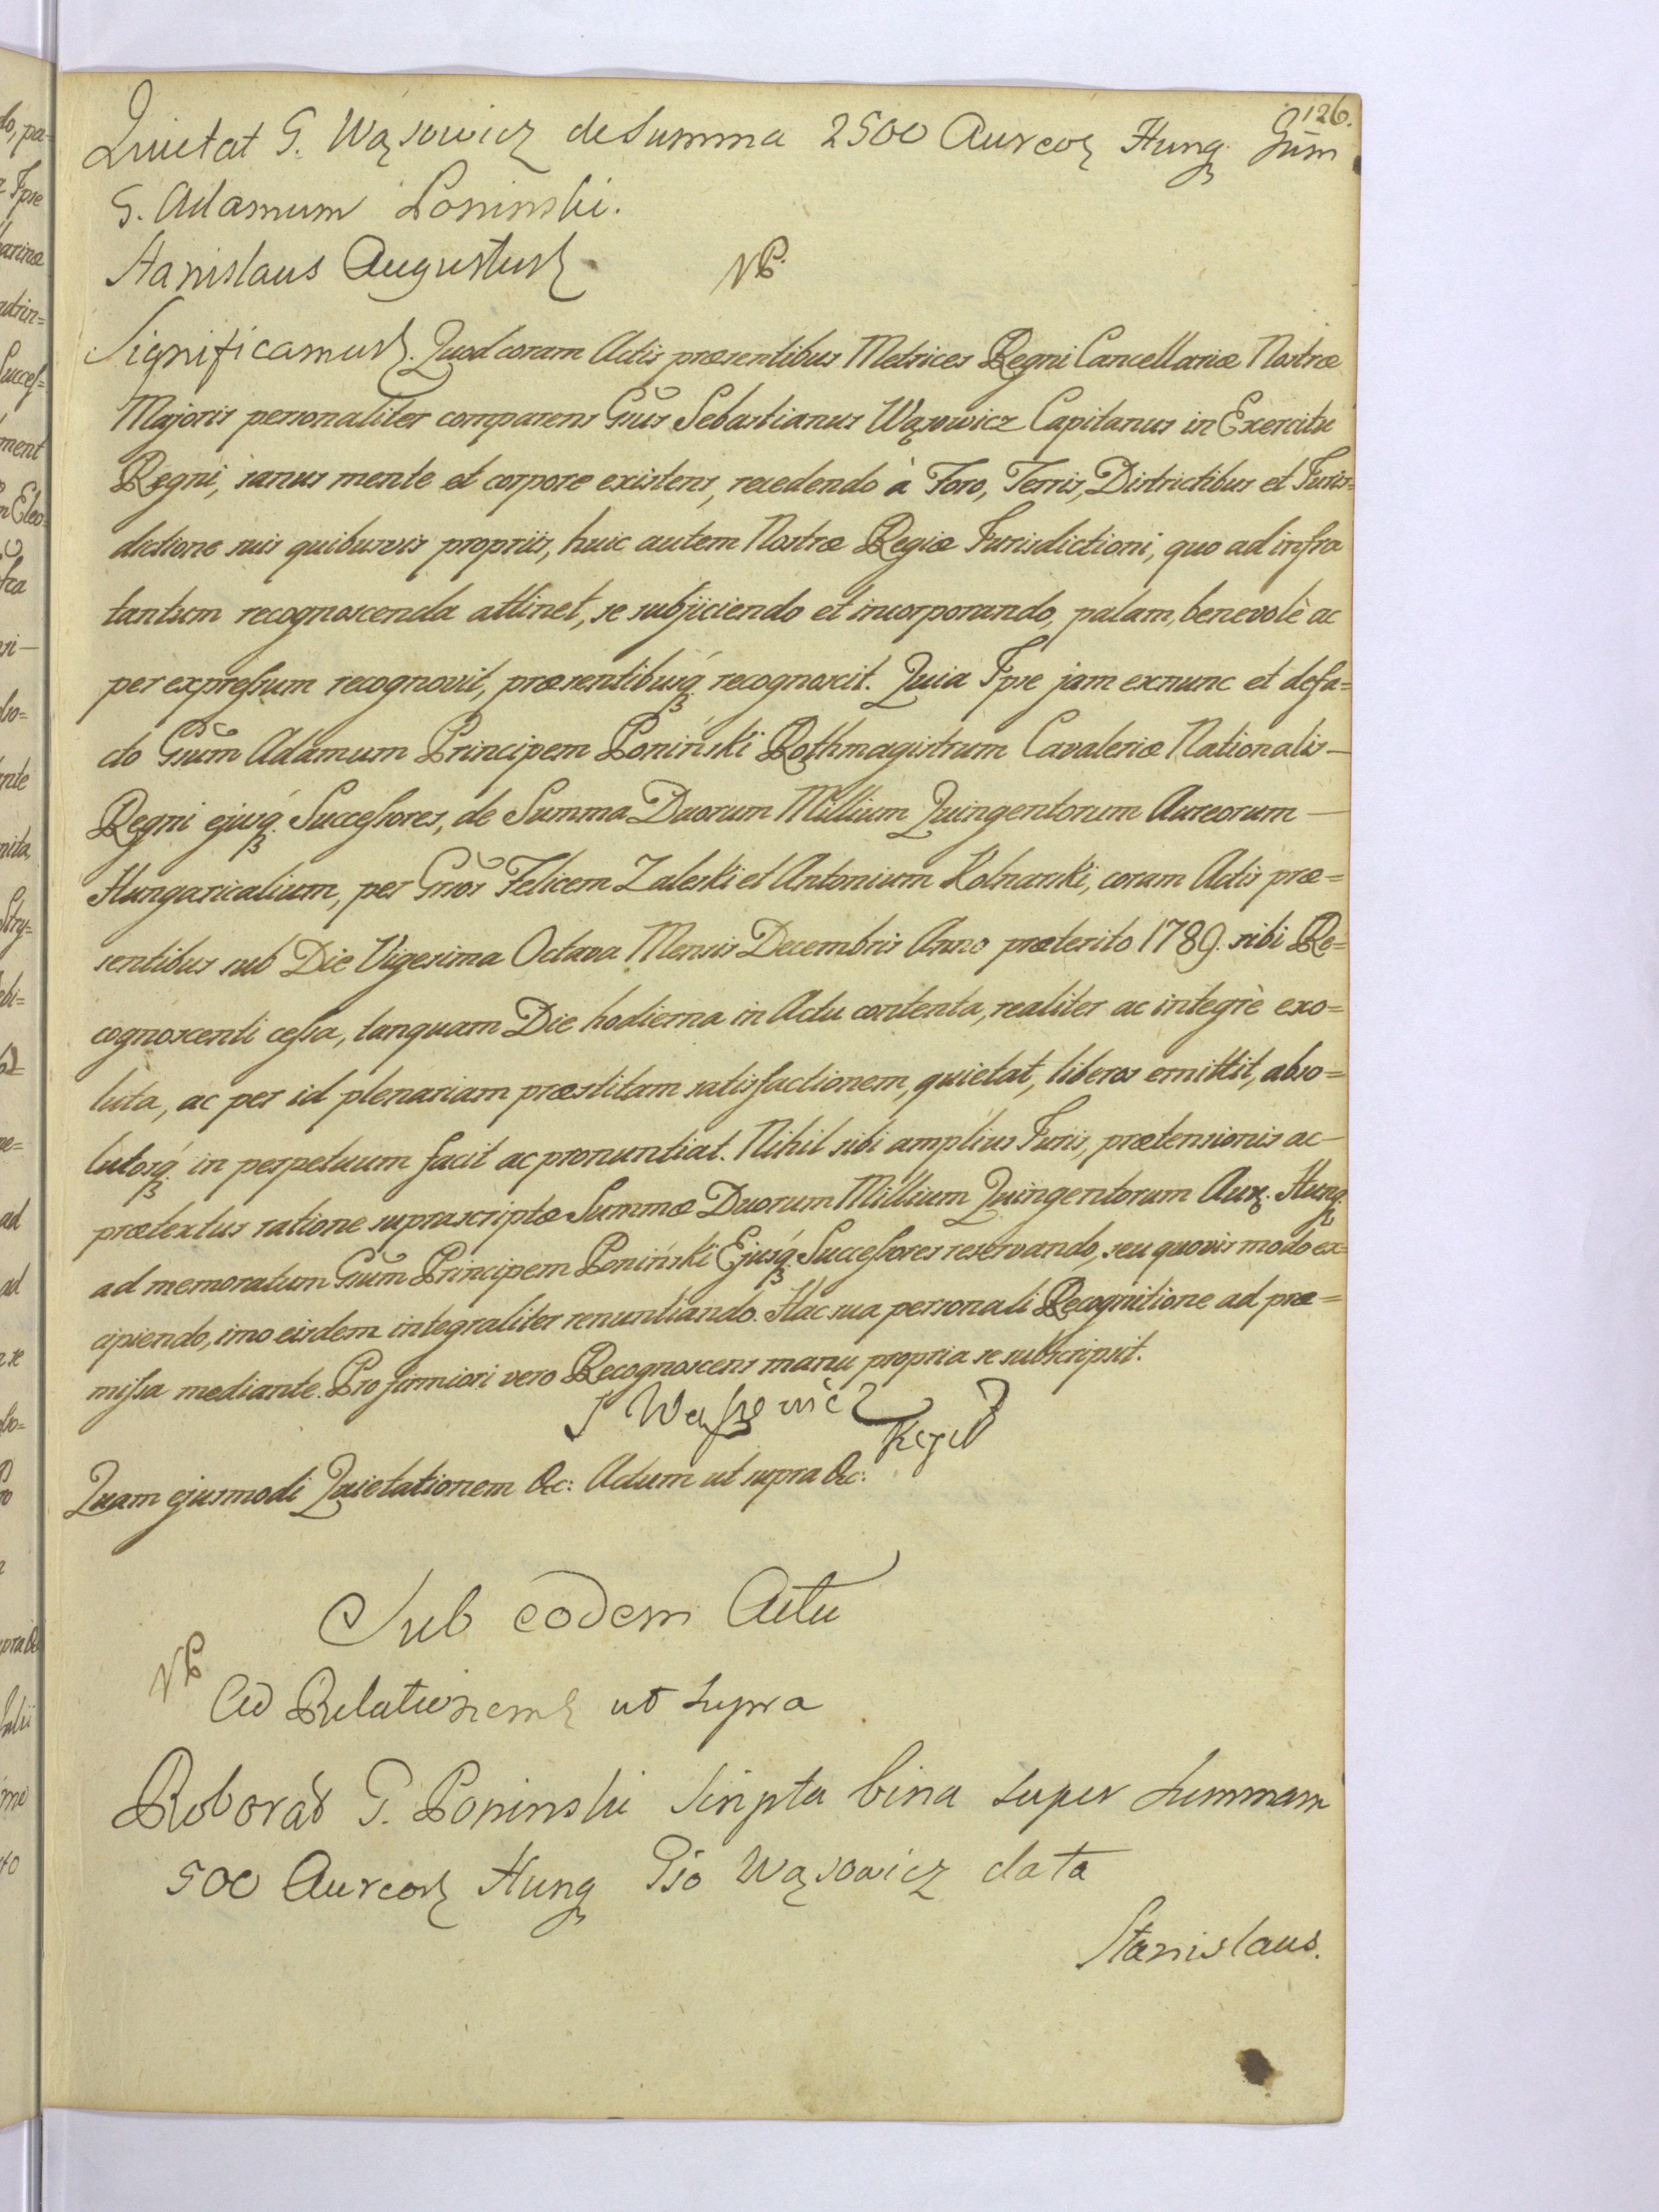 126.
Quietat G. Wąsowicz de Summa 2500 Aureoꝝ Hung. Gũm
G. Adamum Poninski.
Stanislaus Augustus NP.
Significamus. Quod coram Actis præsentibus Metrices Regni Cancellariæ Nostræ
Majoris personaliter comparens Gñus Sebastianus Wąsowicz Capitanus in Exercitu
Regni, sanus mente et corpore existens, recedendo à Foro, Terris, Districtibus et Juris=
dictione suis quibusvis propriis, huic autem Nostræ Regiæ Jurisdictioni, quo ad infra
tantum recognoscenda attinet, se subjiciendo et incorporando, palam, benevolè ac
per expressum recognovit, præsentibusq́ recognoscit. Quia Ipse jam exnunc et defa=
cto Gñum Adamum Principem Poniński Rothmagistrum Cavaleriæ Nationalis —
Regni ejusq́ Successores, de Summa Duorum Millium Quingentorum Aureorum —
Hungaricalium, per Gños Felicem Zaleski et Antonium Kolnarski, coram Actis præ=
sentibus sub Die Vigesima Octava Mensis Decembris Anno præterito 1789. sibi Re=
cognoscenti cessa, tanquam Die hodierna in Actu contenta, realiter ac integrè exo=
luta, ac per id plenariam præstitam satisfactionem, quietat, liberos emittit, abso=
lutosq́ in perpetuum facit ac pronuntiat. Nihil sibi amplius Juris, prætensionis ac—
prætextus ratione suprascriptæ Summæ Duorum Millium Quingentorum Aurꝝ. Hung.
ad memoratum Gñum Principem Poniński Ejusq́ Successores reservando, seu quovis modo ex=
cipiendo, imo eisdem integraliter renuntiando. Hac sua personali Recognitione ad præ=
missa mediante. Pro firmiori vero Recognoscens manu propria se subscripsit.
S Wąssowicz
Quam ejusmodi Quietationem &c: Actum ut supra &c:
Sub eodem Actu
NP
Ad Relationem ut supra
Roborat G. Poninski Scripta bina super Summam
500 Aureoꝝ Hung Gso Wąsowicz data
Stanislaus.